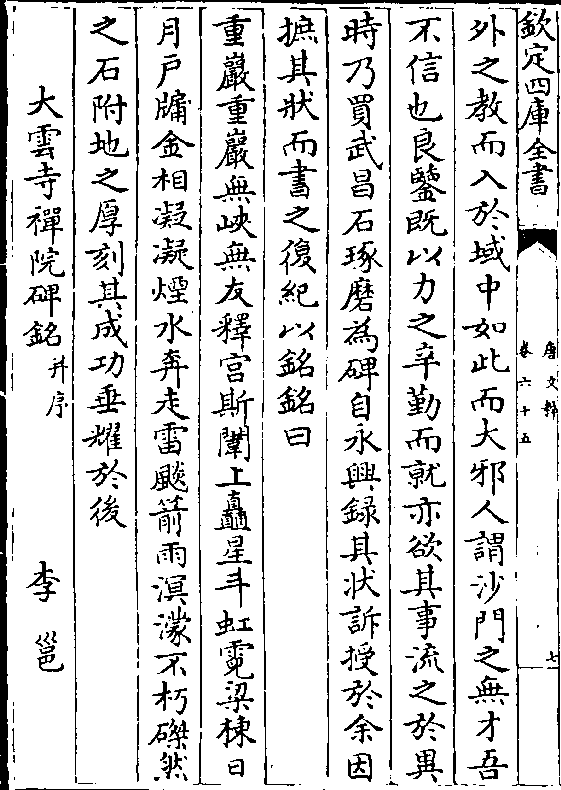 欽定四庫全書
唐文粹
卷六十五
七
外之教而入於域中如此而大邪人謂沙門之無才吾
不信也良鑒既以力之辛勤而就亦欲其事流之於異
時乃買武昌石琢磨為碑自永興録其状訴授於余因
摭其狀而書之復紀以銘銘曰
重巖重巖無峽無友釋宫斯闡上矗星斗虹霓梁棟日
月戸牖金相凝凝煙水奔走雷颷箭雨溟濛不朽磔然
之石附地之厚刻其成功垂耀於後
大雲寺禪院碑銘并序 李邕